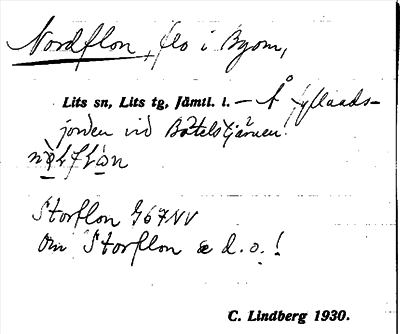 Nordflon, flo i Byom,
Lits sn, Lits tg, Jämtl. l. – Å
jorden vid Båtelstjärnen!
Storflon 767NV
om Storflon se d.o.!
C. Lindberg 1930.